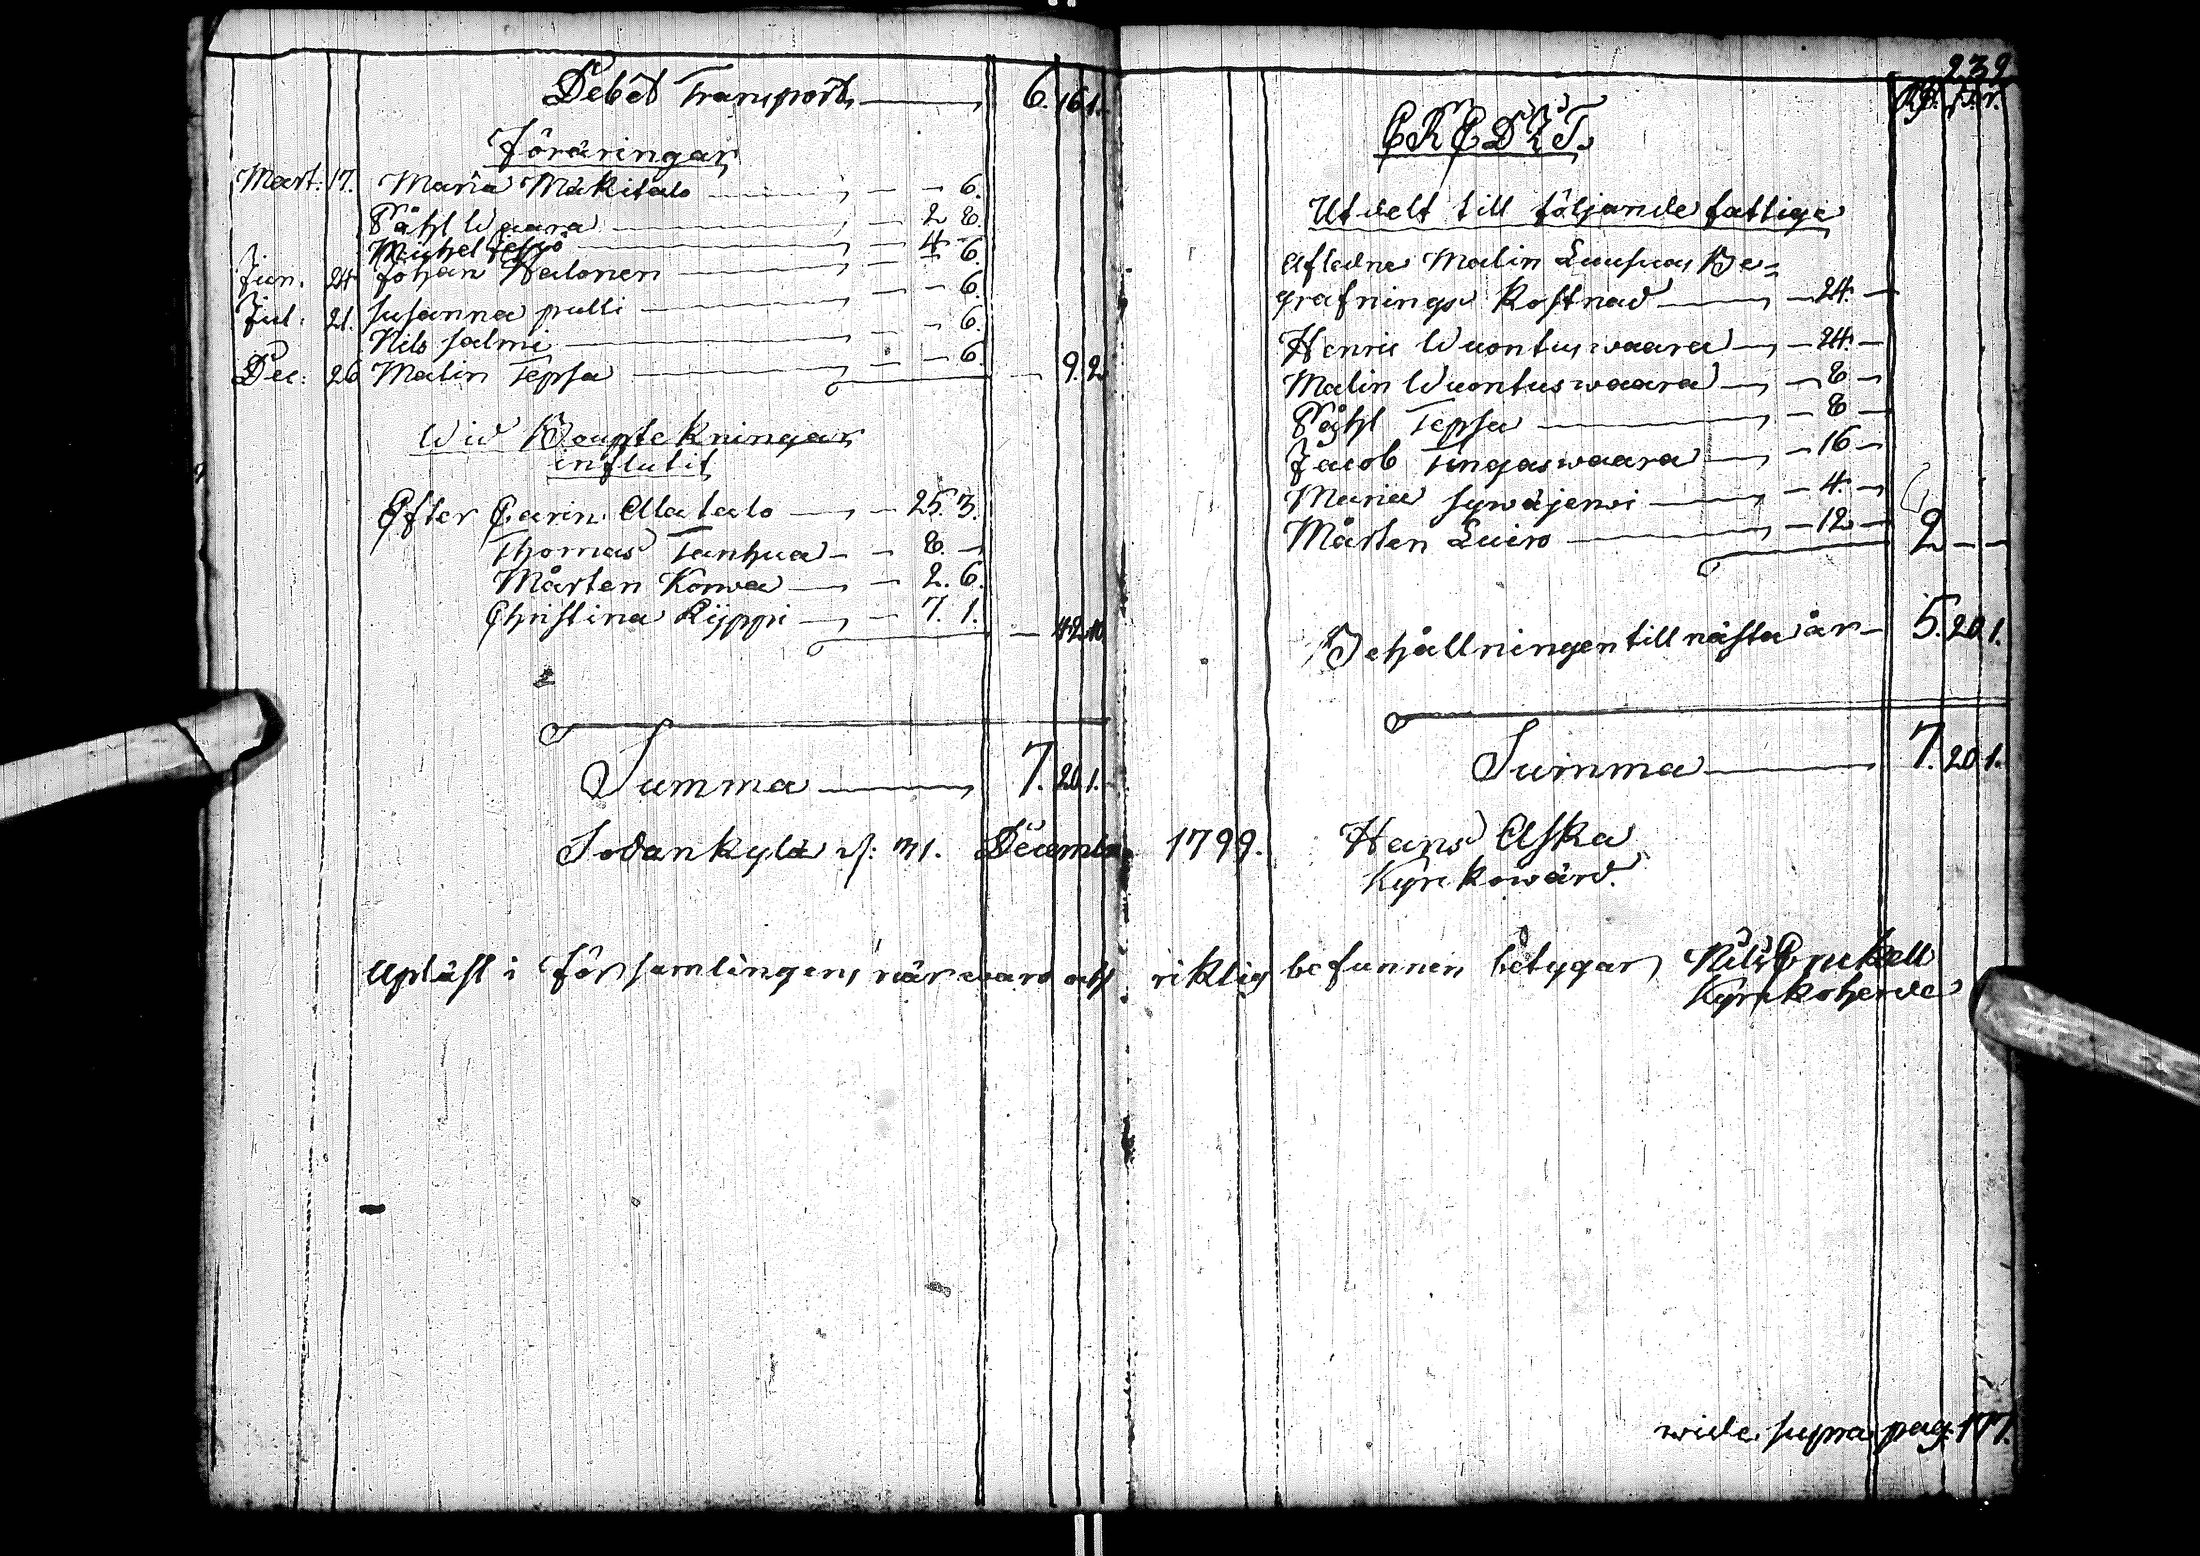 Debet Transport 6. 16 1.
Föräringar
Mart. 17. Maria Mäkitalo 6.
Påhl Waara 2 8.
Michel Jeskö 4 -
Jun. 24 Johan Halonen 6.
Jul. 21. Susanna pulli 6.
Nils Salmi 6.
Dec: 26 Malin Tepsa 6. 9. 2
Wid Bouptekningar
influtit
Efter Carin Alatalo 25. 3.
Thomas Tanhua 8. -
Mårten Korwa 2. 6.
Christina Riyppi 7. 1. 42. 10
Summa 7. 20 1.
Sodankylä d. 31. Decemb.
Upläst i församlingens närwaro och
239
Rd. s. r.
CREDIT.
Utdelt till följande fattige
Afledne Malin Luusuas Be=
grafnings Kostnad 24. -
Henric Wuontuswaara 24. -
Malin Wuontuswaara 8 -
Påhl Tepsa 8 -
Jacob Tingaswaara 16 -
Maria Sywäjerwi 4. -
Mårten Luiro 12 - 2 - -
Behållningen till nästa år 5. 20. 1.
Summa 7. 20 1.
1799. Hans Aska
Kyrckowärd.
riktig befunnen betygar, Nils Fruckell
Kyrckoherde
wide supra pag. 177.